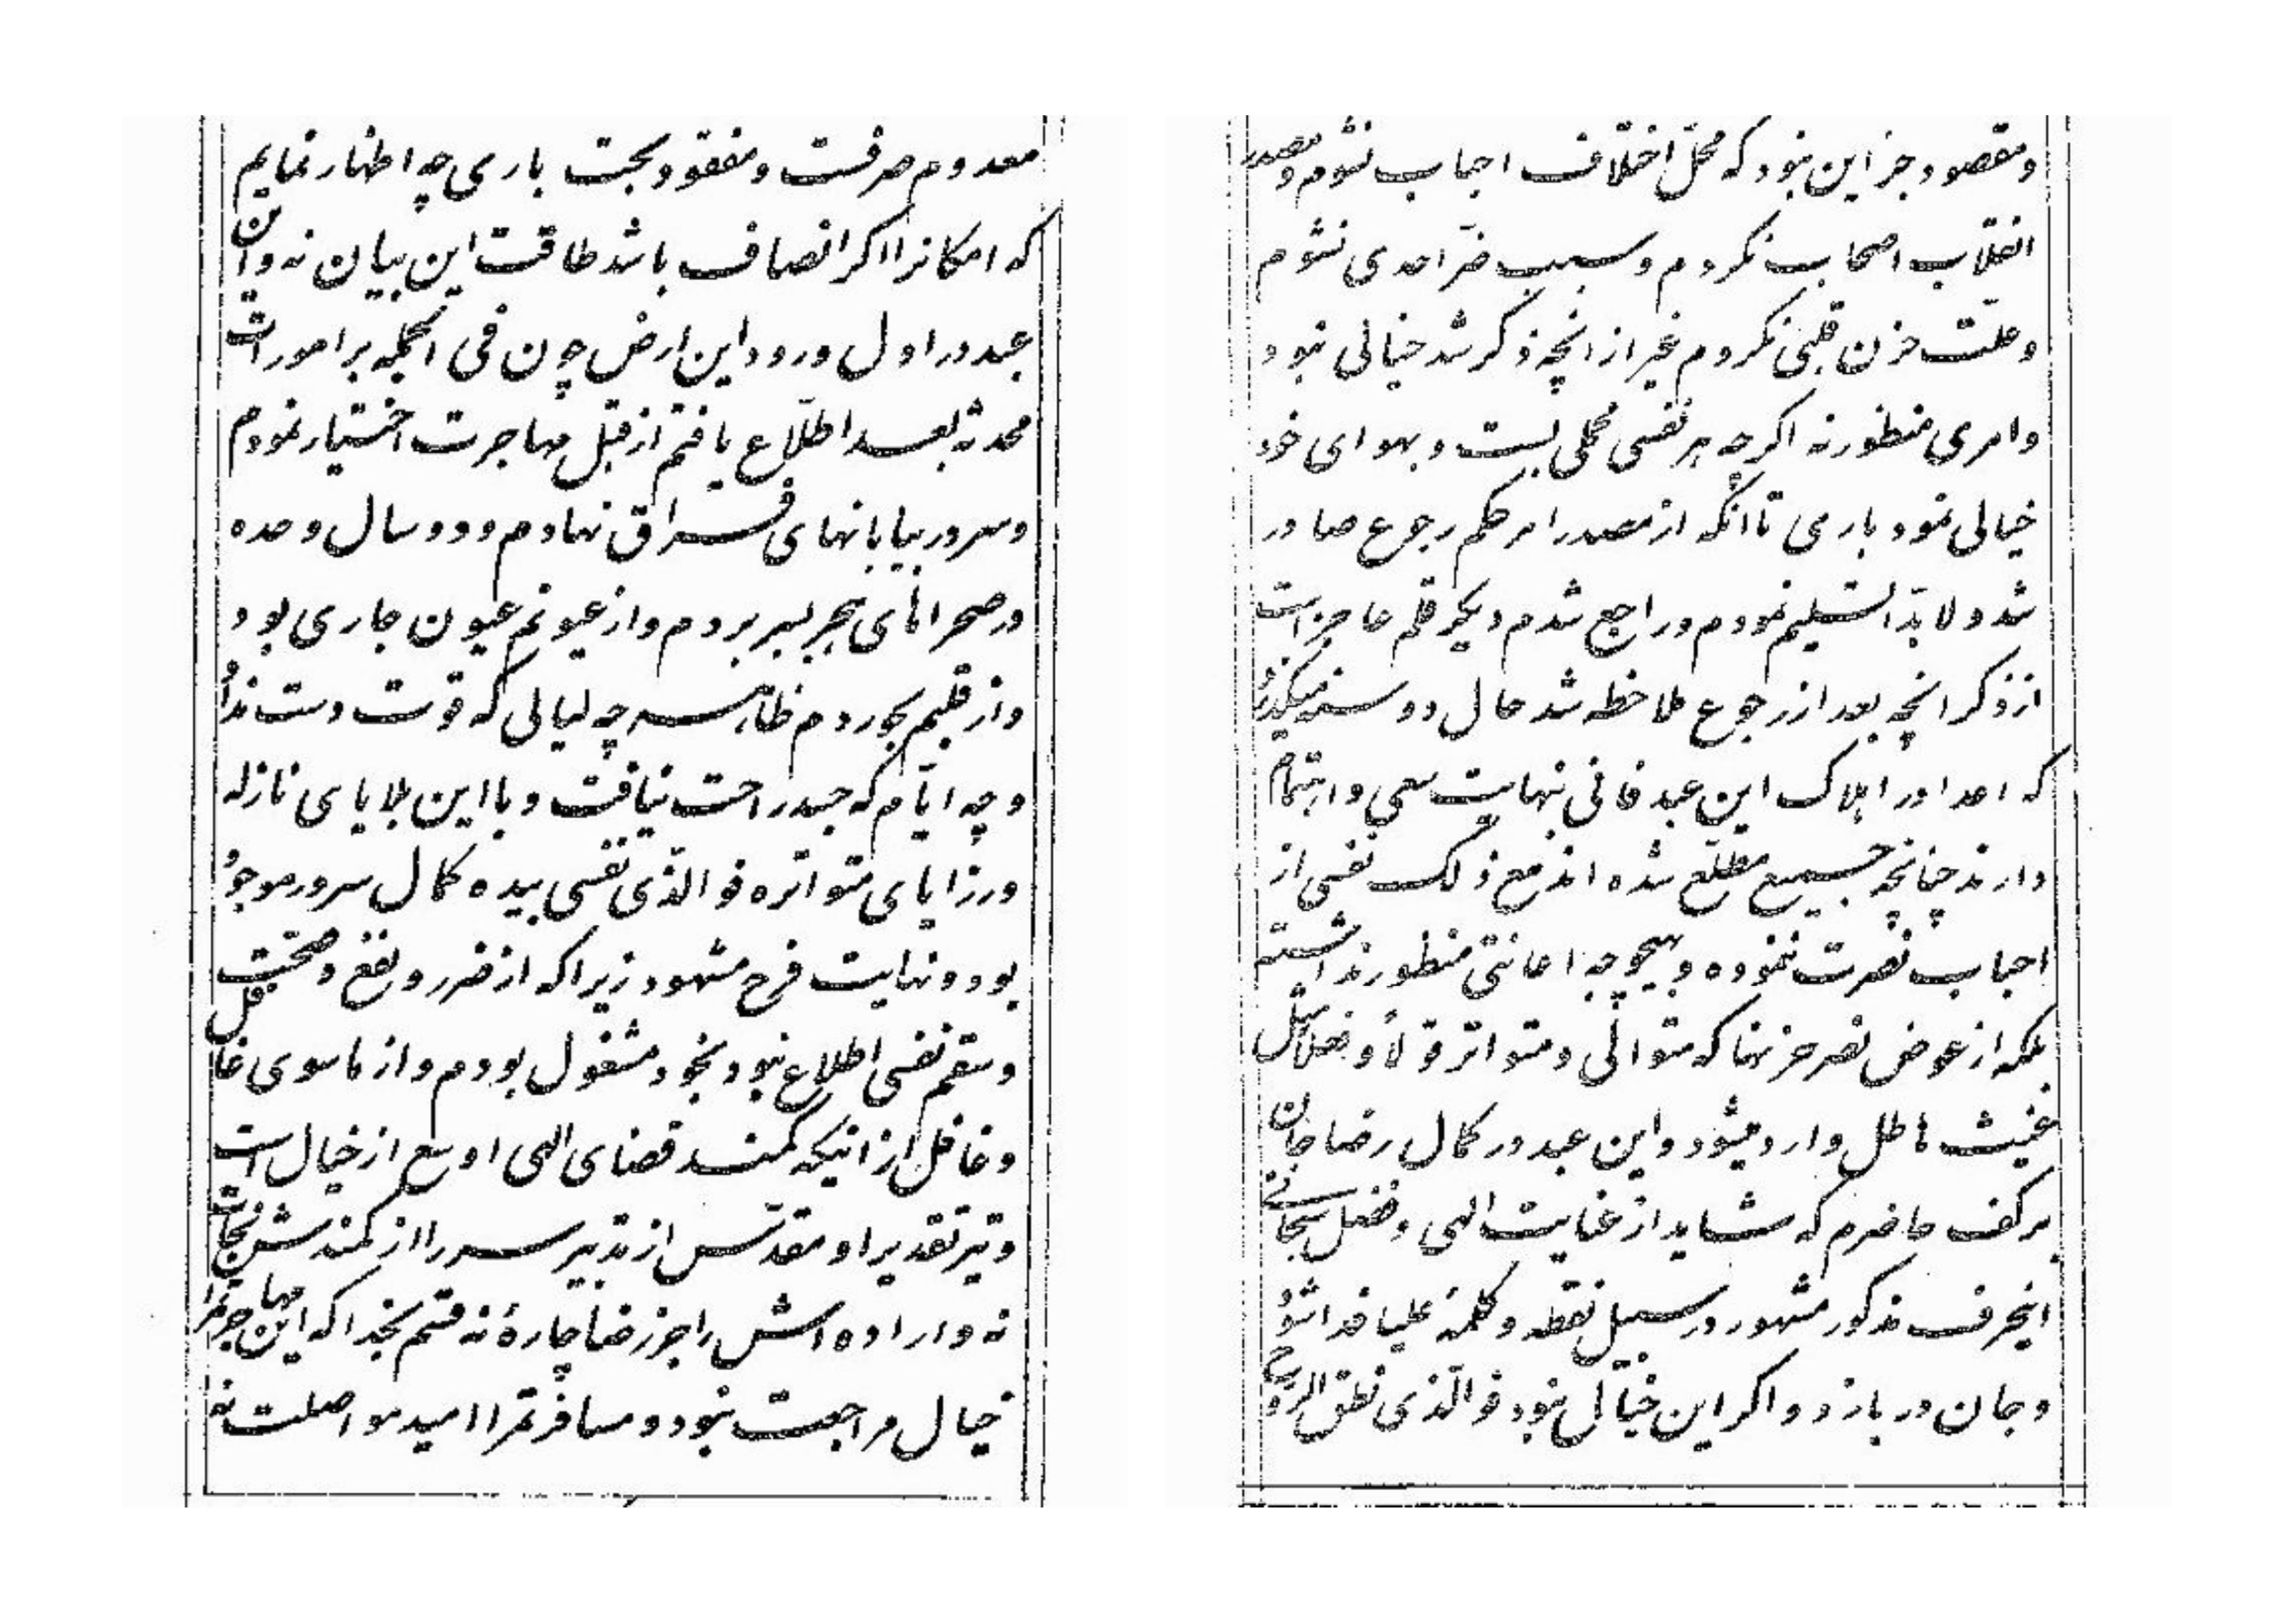 معدوم صرفست و مفقود بحت باری چه اظهار نمایم
که امکانرا اگر انصاف باشد طاقت این بیان نه و این
عبد در اول ورود این ارض چون فی الجمله بر امورات
محدثه بعد اطّلاع یافتم از قبل مهاجرت اختیار نمودم
و سر در بیابانهای فراق نهادم و دو سال وحده
در صحراهای هجر بسر بردم و از عیونم عیون جاری بود
و از قلبم بحور دم ظاهر چه لیالی که قوت دست نداد
و چه ایّام که جسد راحت نیافت و با این بلایای نازله
و رزایای متواتره فو الّذی نفسی بیده کمال سرور موجود
بود و نهایت فرح مشهود زیرا که از ضرر و نفع و صحّت
و سقم نفسی اطلاع نبود بخود مشغول بودم و از ماسوی غافل
و غافل از اینکه کمند قضای الهی اوسع از خیال است
و تیر تقدیر او مقدّس از تدبیر سر را از کمندش نجات
نه و اراده اش را جز رضا چارهٔ نه قسم بخدا که این مهاجرتم را
خیال مراجعت نبود و مسافرتم را امید مواصلت نه
و مقصود جز این نبود که محلّ اختلاف احباب نشوم و مصدر
انقلاب اصحاب نگردم و سبب ضرّ احدی نشوم
و علّت حزن قلبی نگردم غیر از انچه ذکر شد خیالی نبود
و امری منظور نه اگرچه هر نفسی محملی بست و بهوای خود
خیالی نمود باری تا انکه از مصدر امر حکم رجوع صادر
شد و لابدّا تسلیم نمودم و راجع شدم دیگر قلم عاجز است
از ذکر انچه بعد از رجوع ملاحظه شد حال دو سنه میگذرد
که اعدا در اهلاک این عبد فانی نهایت سعی و اهتمام
دارند چنانچه جمیع مطّلع شده اند مع ذلک نفسی از
احباب نصرت ننموده و بهیچوجه اعانتی منظور نداشته
بلکه از عوض نصر حزنها که متوالی و متواتر قولاً و فعلاً مثل
غیث هاطل وارد میشود و این عبد در کمال رضا جان
بر کف حاضرم که شاید از عنایت الهی و فضل سبحانی
اینحرف مذکور مشهور در سبیل نقطه و کلمهٔ علیا فدا شود
و جان در بازد و اگر این خیال نبود فو الّذی نطق الروح